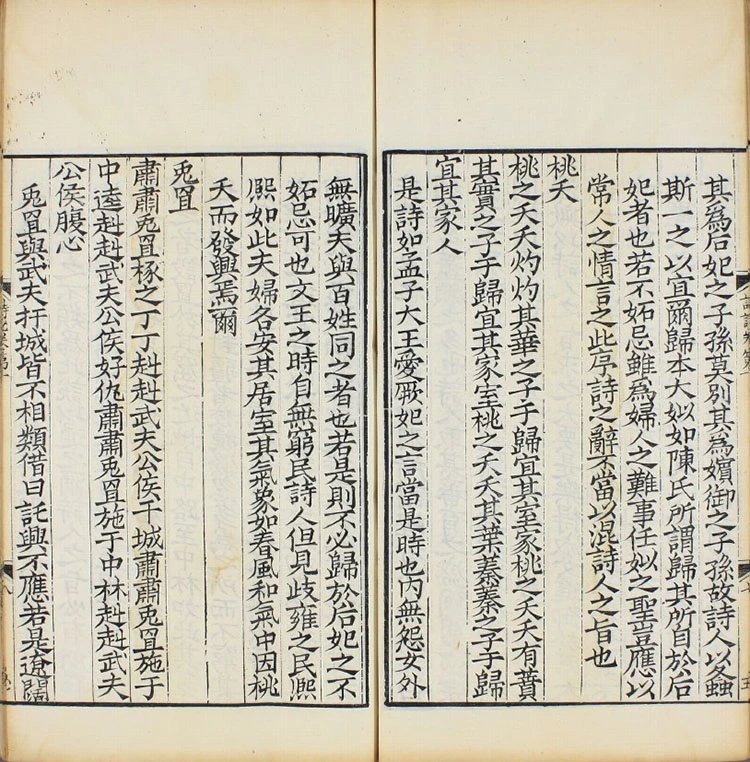 其為后妃之子孫莫別其為嬪御之子孫故詩人以螽
斯一之以宜爾歸本大姒如陳氏所謂歸其所自於后
妃者也若不妬忌雖為婦人之難事任姒之聖豈應以
常人之情言之此序詩之辭不當以混詩人之旨也
桃夭
桃之夭夭灼灼其華之子于歸宜其室家桃之夭夭有蕡
其實之子于歸宜其家室桃之夭夭其葉蓁蓁之子于歸
宜其家人
是詩如孟子大王愛厥妃之言當是時也內無怨女外
無曠夫與百姓同之者也若是則不必歸於后妃之不
妬忌可也文王之時自無窮民詩人但見歧雍之民熈
熈如此夫婦各安其居室其氣象如春風和氣中因桃
夭而發興焉爾
兎罝
肅肅兎罝椓之丁丁赳赳武夫公侯干城肅肅兎罝施于
中逵赳赳武夫公侯好仇肅肅兎罝施于中林赳赳武夫
公侯腹心
兎罝與武夫扞城皆不相類借曰託興不應若是遼闊